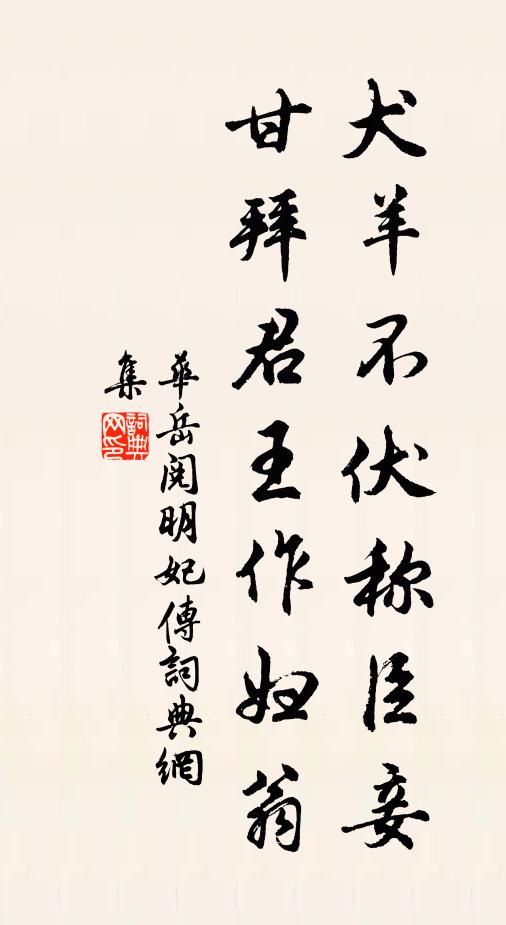 犬羊不伏称臣妾
甘拜君王作妇翁
華岳閱明妃傳詞典網
集
詞典
网印